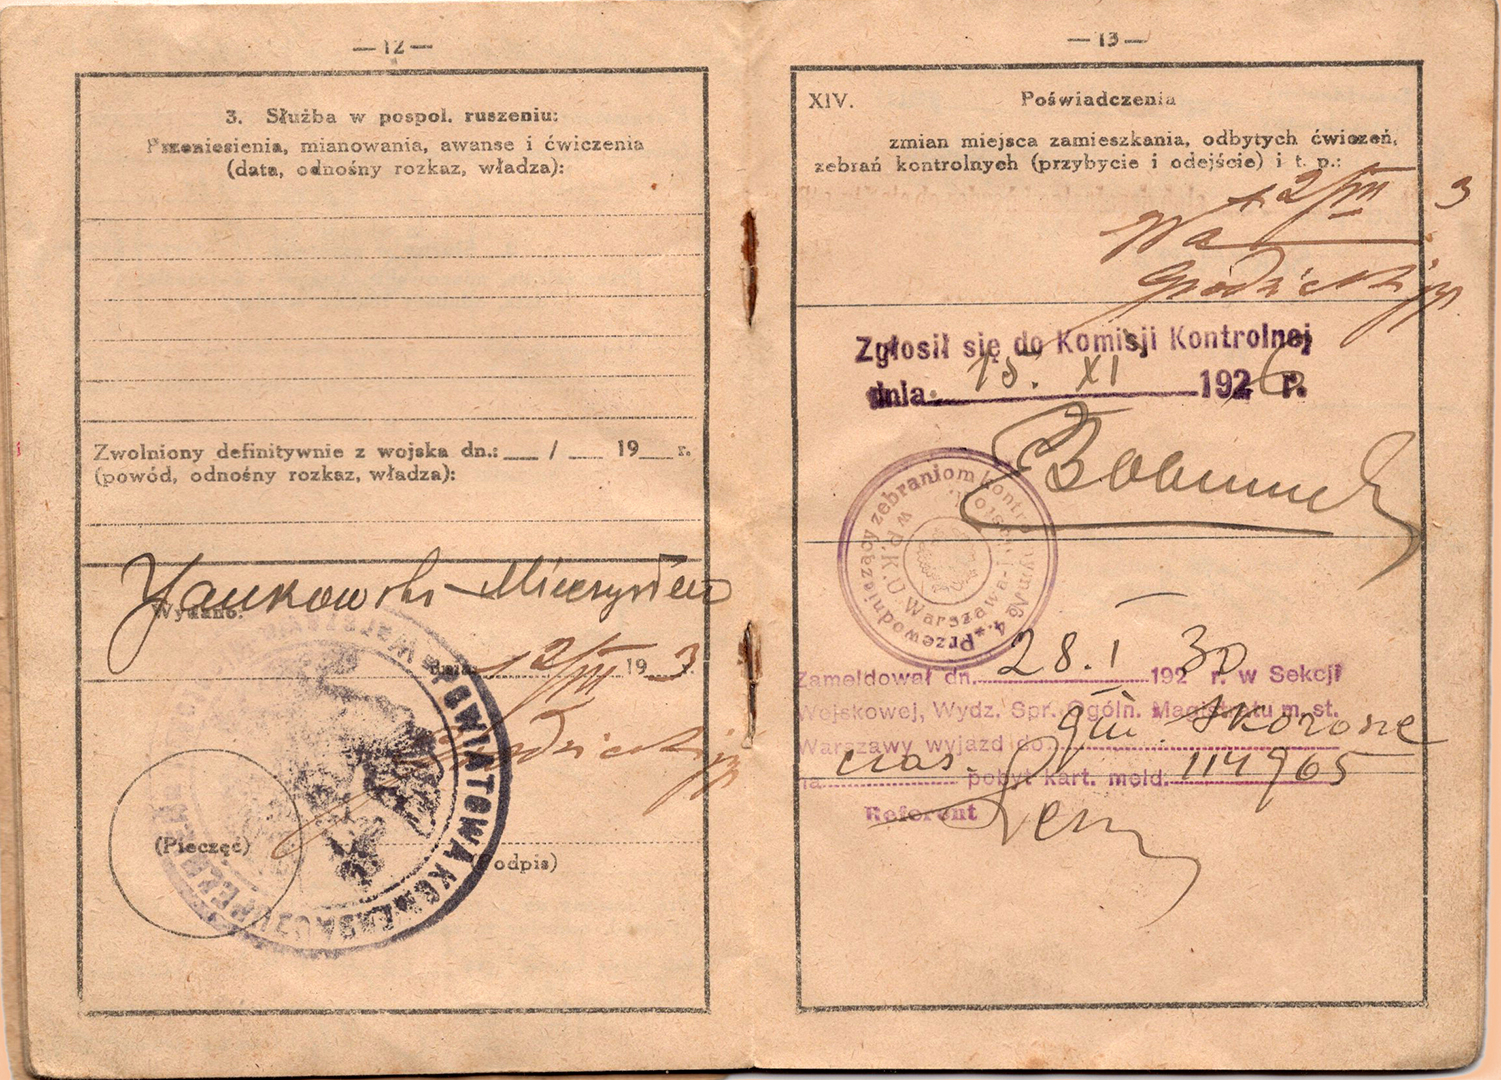 — 12 —
3. Służba w pospol. ruszeniu:
Przeniesienia, mianowania, awanse i ćwiczenia
(data, odnośny rozkaz, władza):
Zwolniony definitywnie z wojska dn.: / 19 r.
(powód, odnośny rozkaz, władza):
Jankowski Mieczysław
Wydano:
dnia 12/VII 19 3
(Pieczęć)
(Podpis)
POWIATOWA KOMENDA UZUPEŁNIEŃ
— 13 —
XIV. Poświadczenia
zmian miejsca zamieszkania, odbytych ćwiczeń,
zebrań kontrolnych (przybycie i odejście) i t. p.:
12/VII 3
Zgłosił się do Komisji Kontrolnej
dnia 15. XI 1926 r.
Przewodniczący zebraniom kontrolnym № 4.
w P.K.U Warszawa-
Zameldował dn. 28.I 1930 r. w Sekcji
Wojskowej, Wydz. Spr. Ogóln. Magistratu m. st.
Warszawy wyjazd do gm. Skorosze
na czas. pobyt kart. meld. 114965
Referent